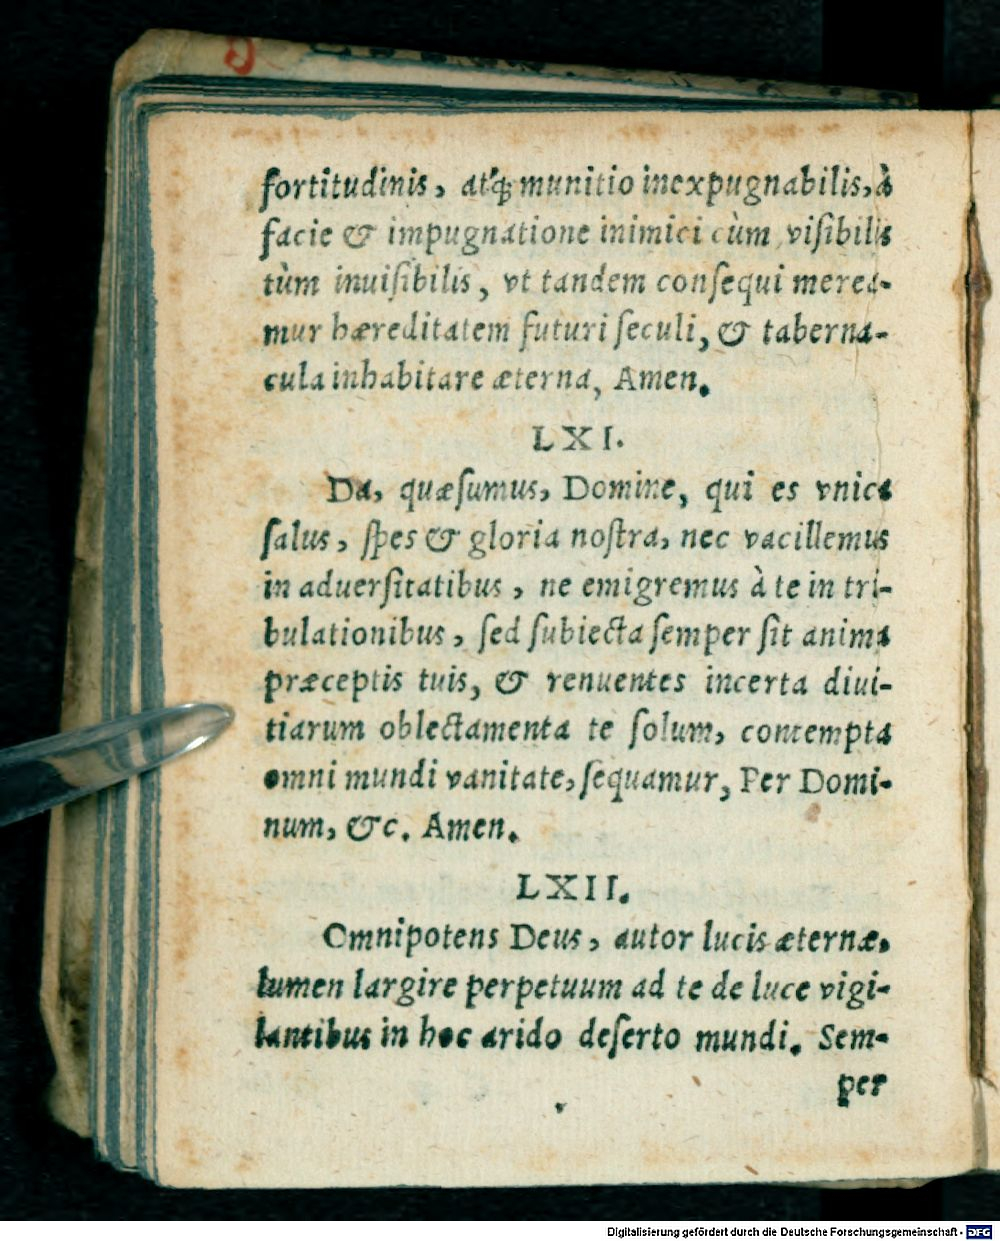 fortitudinis, atq́; munitio inexpugnabilis, à
facie & impugnatione inimici cùm visibilis
tùm inuisibilis, vt tandem consequi merea-
mur hæreditatem futuri seculi, & taberna-
cula inhabitare æterna, Amen.
LXI.
Da, quæsumus, Domine, qui es vnica
salus, spes & gloria nostra, nec vacillemus
in aduersitatibus, ne emigremus à te in tri-
bulationibus, sed subiecta semper sit anima
præceptis tuis, & renuentes incerta diui-
tiarum oblectamenta te solum, contempta
omni mundi vanitate, sequamur, Per Domi-
num, &c. Amen.
LXII.
Omnipotens Deus, autor lucis æternæ,
lumen largire perpetuum ad te de luce vigi-
lantibus in hoc arido deserto mundi. Sem-
per
Digitalisierung gefördert durch die Deutsche Forschungsgemeinschaft - DFG